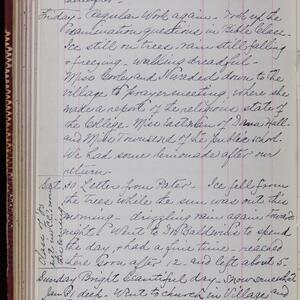 Friday - Regular Work again - Took up the
examination questions in Bible Class.
Ice still on trees - rain still falling
& freezing - walking dreadful -
Miss Cooley and Nevada down to the
village to prayer meeting, where she
made a report of the religious state of
the College. Miss Eastman of Dana Hall
and Miss Townsend of the public school.
We had some lemonade after our
return.
Sat. 30 Letter from Peter - Ice fell from
the trees while the sun was out this
morning - drizzling rain again toward
night. Went to Mrs Baldwin's to spend
the day, & had a fine time - reached
there soon after 12 - and left about 5 -
Sunday Bright beautiful day - snow
Jan 31 deep - Went to church in Village
Class of 80